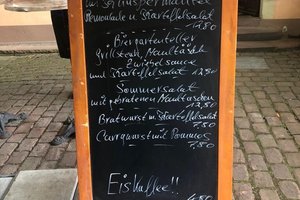 Remoulade u. Kartoffelsalat
12,50
Biergartenteller
Grillsteak, Maultasche
Zwiebelsauce
und Kartoffelsalat 12,50
Sommersalat
mit gebratenen Maultaschen
12,50
Bratwurst u. Kartoffelsalat
7,50
Currywurst mit Pommes
7,50
Eiskaffee!!
4,50